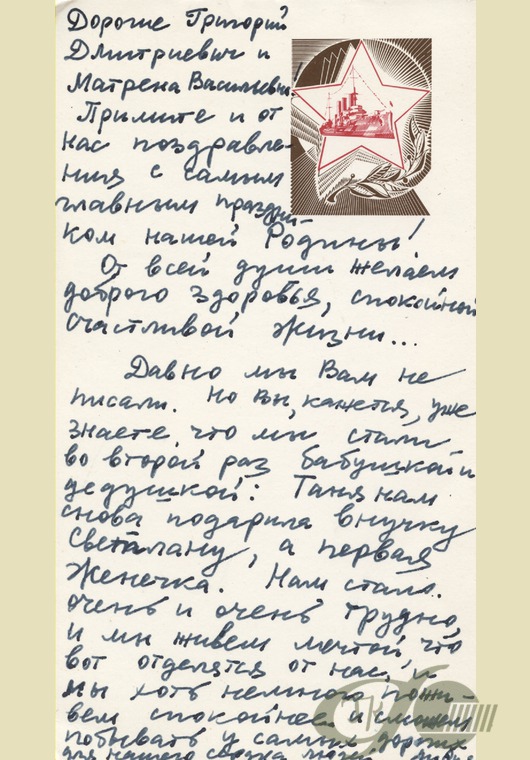 Дорогие Григорий
Дмитриевич и
Матрена Васильевна!
Примите и от
нас поздравле-
ния с самым
главным праздни-
ком нашей Родины!
От всей души желаем
доброго здоровья, спокойной
счастливой жизни...
Давно мы Вам не
писали. Но Вы, кажется, уже
знаете, что мы стали
во второй раз бабушкой и
дедушкой: Таня нам
снова подарила внучку
Светлану, а первая
Женечка. Нам стало
очень и очень трудно,
и мы живем мечтой, что
вот отделятся от нас, и
мы хоть немного пожи-
вем спокойнее и сможем
побывать у самых дорогих
для нашего сердца людей